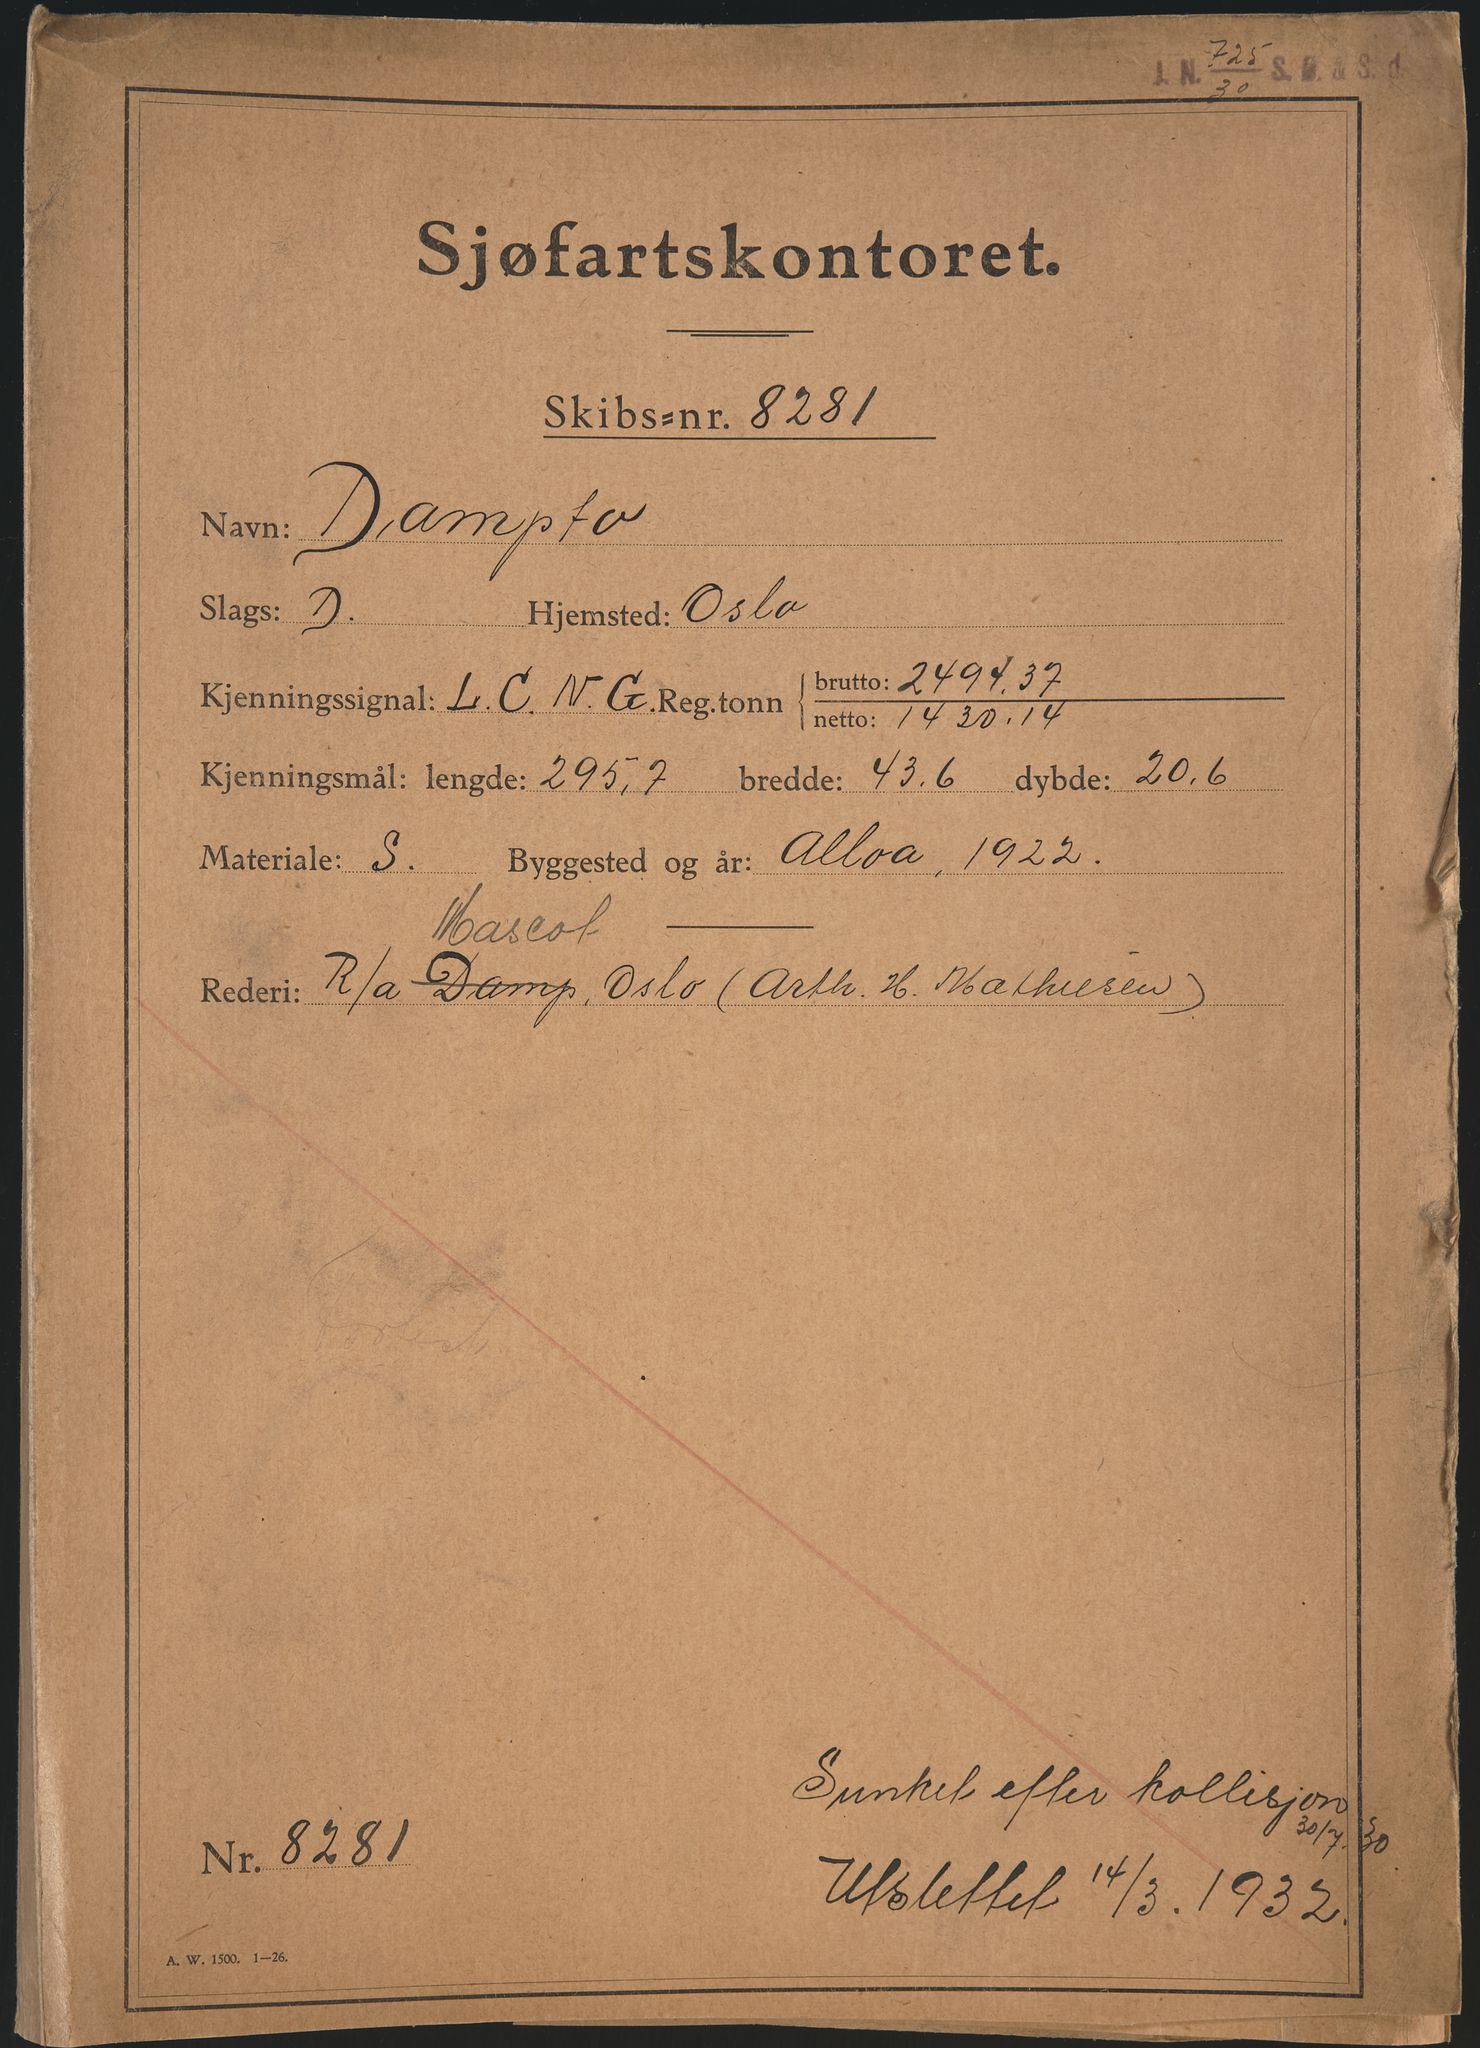 J. N. 725/30 S. Ø. & S. d.
Sjøfartskontoret.
Skibs=nr. 8281
Navn: Dampto
Slags: D. Hjemsted: Oslo
Kjenningssignal: L. C. N. G. Reg.tonn brutto: 2494.37
netto: 1430.14
Kjenningsmål: lengde: 295,7 bredde: 43.6 dybde: 20.6
Materiale: S. Byggested og år: Alloa, 1922.
Mascot
Rederi: R/a Damp, Oslo (Arth. H. Mathiesen)
Sunket efter kollisjon
30/7. 30
Nr. 8281
Utslettet 14/3. 1932.
A. W. 1500. 1—26.